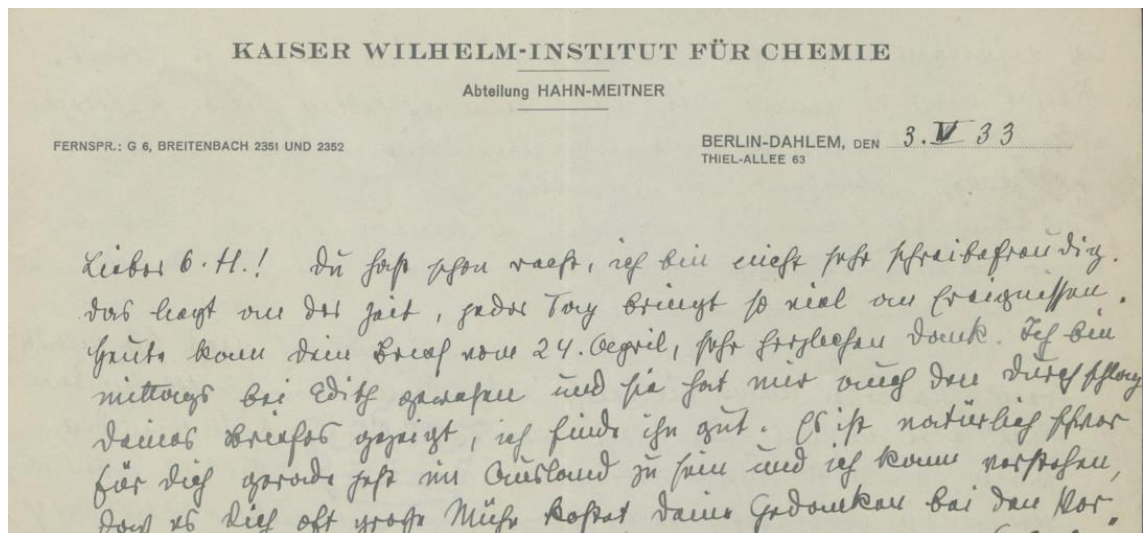 KAISER WILHELM-INSTITUT FÜR CHEMIE
Abteilung HAHN-MEITNER
FERNSPR.: G 6, BREITENBACH 2351 UND 2352
BERLIN-DAHLEM, DEN 3. V 33
THIEL-ALLEE 63
Lieber O. H.! Du hast schon recht, ich bin nicht sehr schreibefreudig.
Das liegt an der Zeit, jeder Tag bringt so viel an Ereignissen.
Heute kam dein Brief vom 24. April, sehr herzlichen Dank. Ich bin
mittags bei Edith gewesen und sie hat mir auch den Durchschlag
deines Briefes gezeigt, ich finde ihn gut. Es ist natürlich schwer
für dich gerade jetzt im Ausland zu sein und ich kann verstehen,
daß es dich oft große Mühe kostet deine Gedanken bei den Vor-